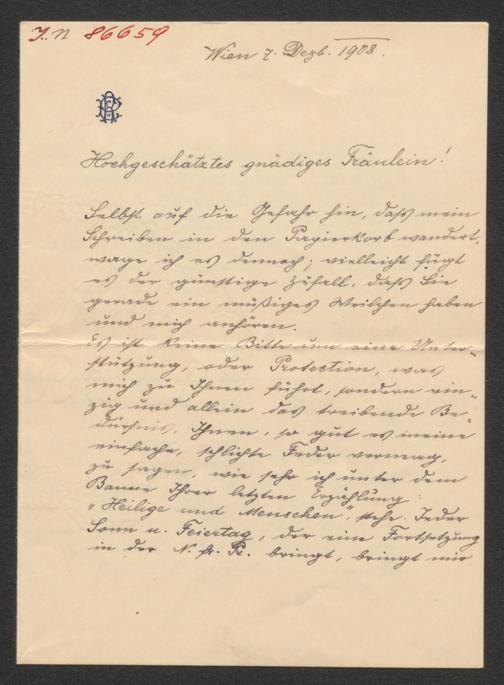 J.N 86659
Wien 7. Dezb. 1908.
Hochgeschätztes gnädiges Fräulein!
Selbst auf die Gefahr hin, daß mein
Schreiben in den Papierkorb wandert,
wage ich es dennoch; vielleicht fügt
es der günstige Zufall, daß Sie
gerade ein müßiges Weilchen haben
und mich anhören.
Es ist keine Bitte um eine Unter-
stützung, oder Protection, was
mich zu Ihnen führt, sondern ein-
zig und allein das treibende Be-
dürfnis, Ihnen, so gut es meine
einfache, schlichte Feder vermag,
zu sagen, wie sehr ich unter dem
Banne Ihrer letzten Erzählung:
"Heilige und Menschen", stehe. Jeder
Sonn u. Feiertag, der eine Fortsetzung
in der N. fr. Pr. bringt, bringt mir